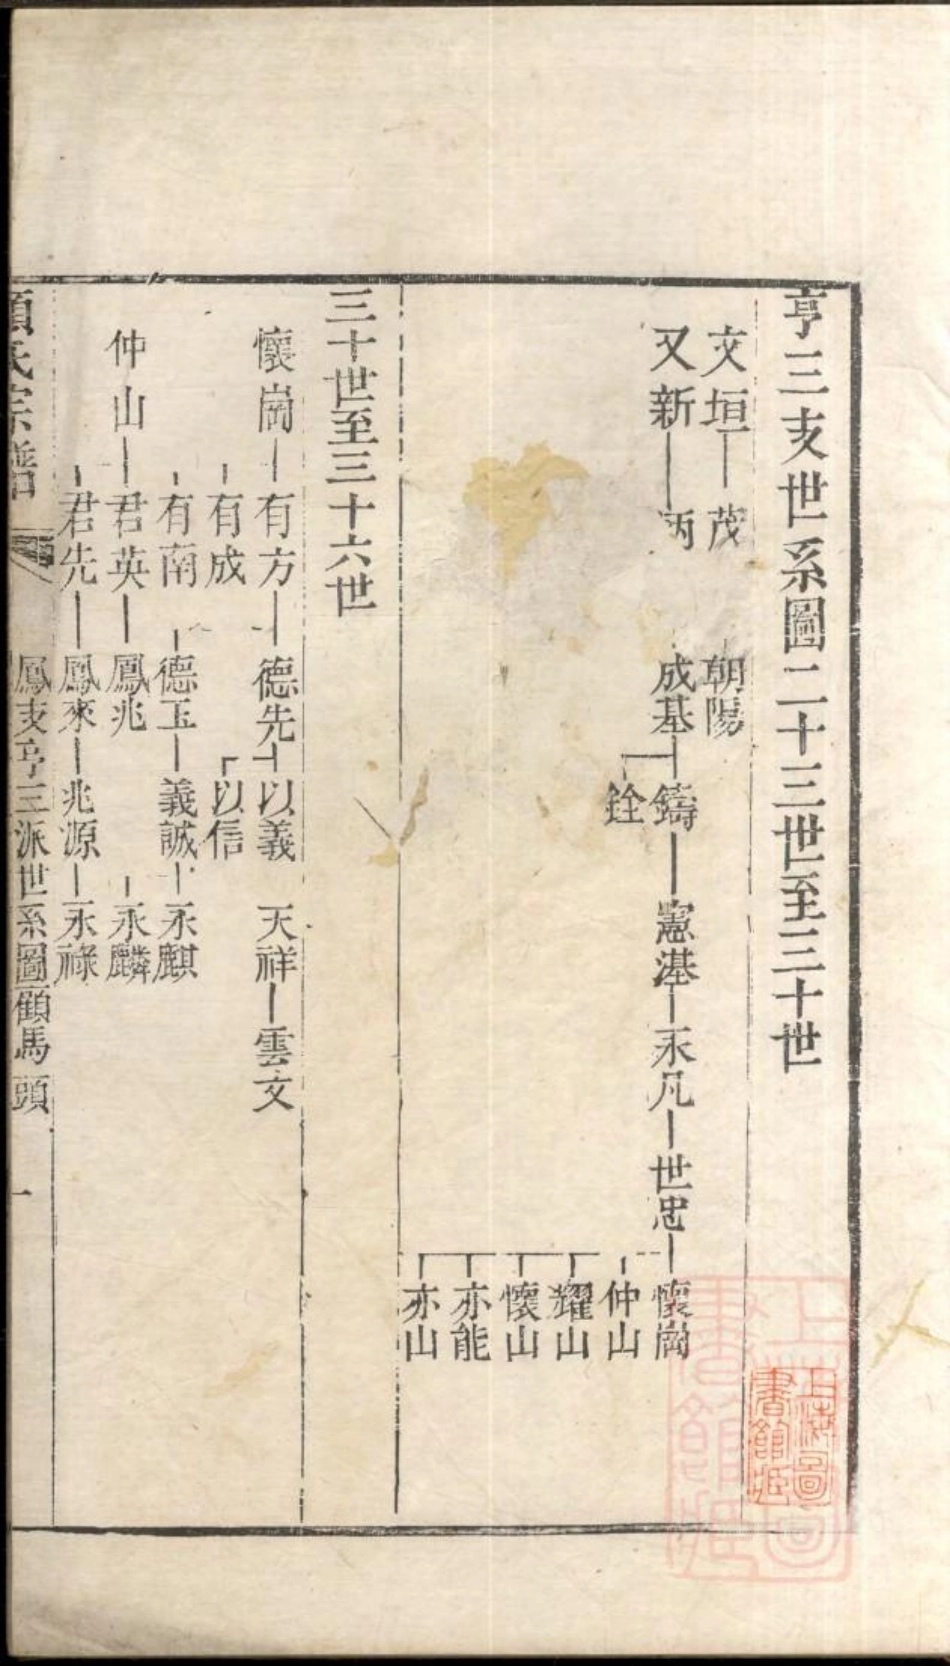 亨三支世系圖二十三世至三十世
文垣 茂 朝陽
又新 炳 成基 鑄 憲湛 永凡 世忠 懷崗
銓 仲山
耀山
懷山
亦能
亦山
三十世至三十六世
懷崗 有方 德先 以義 天祥 雲文
有成 以信
有南 德玉 義誠 永麒
仲山 君英 鳳兆 永麟
君先 鳳來 兆源 永祿
氏宗譜 鳳支亨三派世系圖 顧馬頭 一
上海圖書館藏